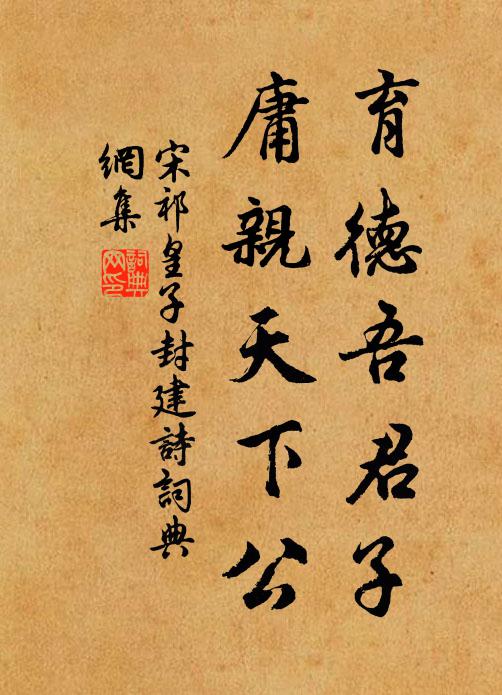 育德吾君子
庸親天下公
宋祁皇子封建詩詞典
網集
詞典
网印